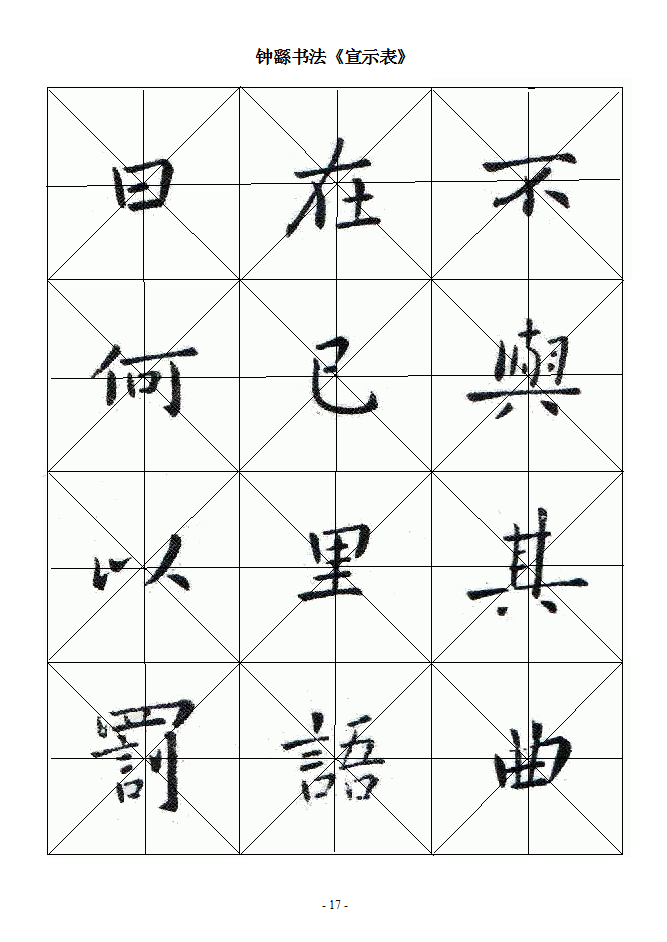 钟繇书法《宣示表》
不與其曲
在已里語
曰何以罰
- 17 -